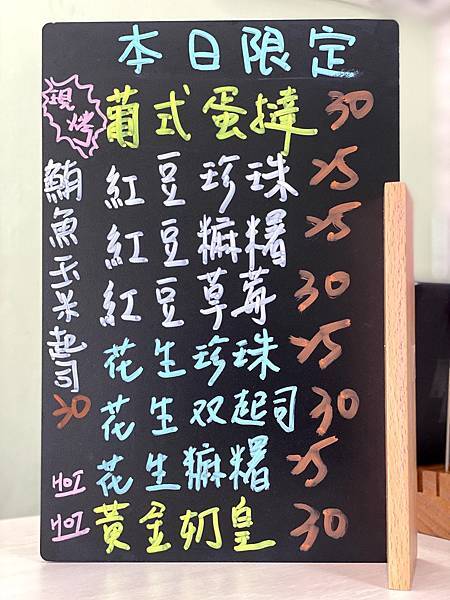 本日限定
現烤 葡式蛋撻 30
紅豆珍珠 25
紅豆麻糬 25
紅豆草莓 30
花生珍珠 25
花生双起司 30
HOT 花生麻糬 25
HOT 黃金奶皇 30
鮪魚玉米起司 30